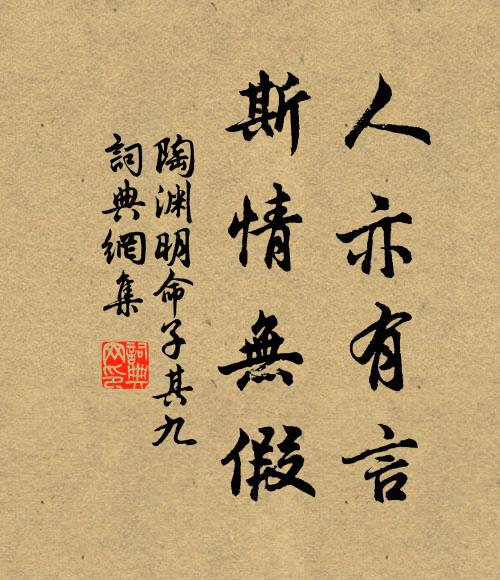 人亦有言
斯情無假
陶渊明命子其九
詞典網集
詞典
网印